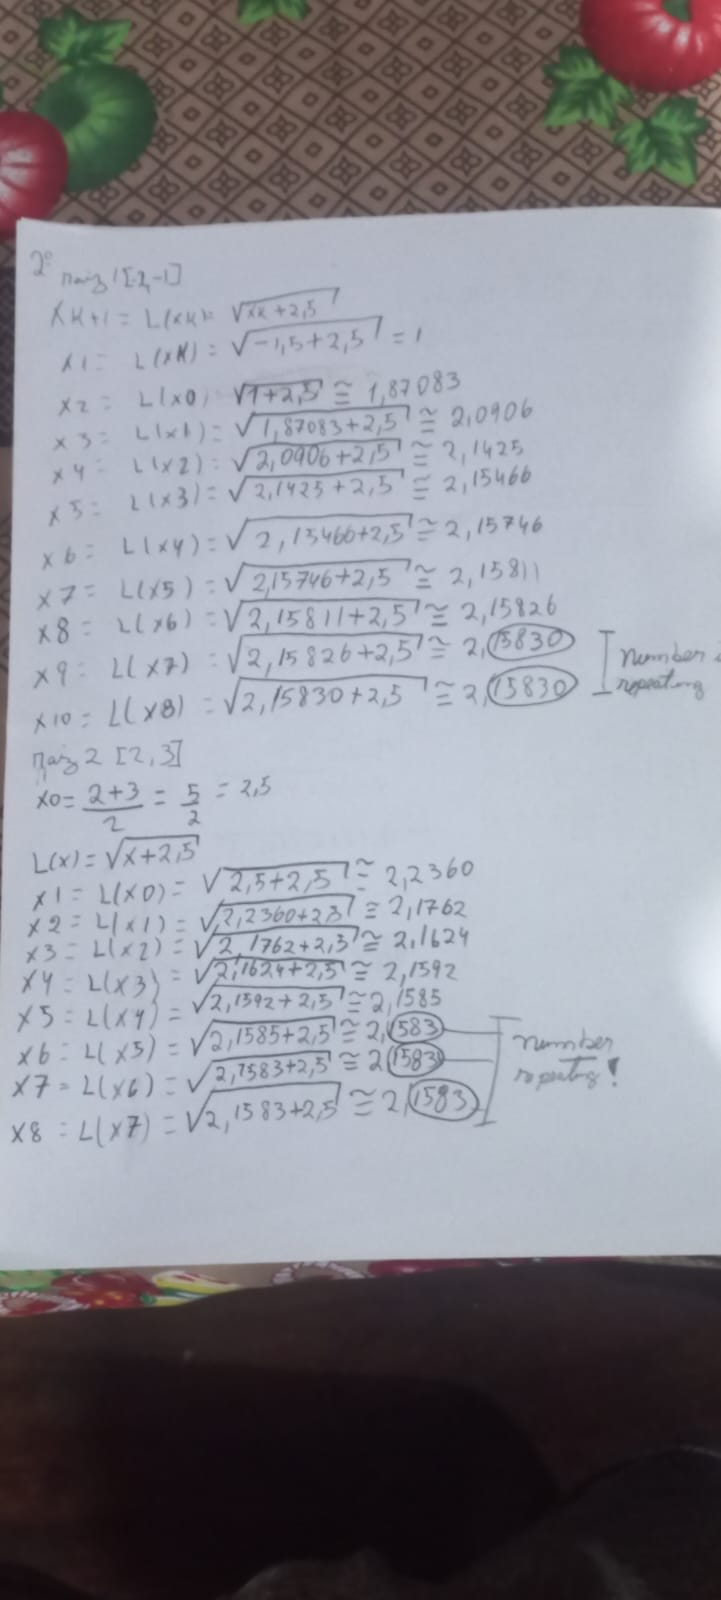 2º raiz 1 [-2,-1]
xk+1 = L(xk) = √xk+2,5
x1 = L(xk) = √-1,5+2,5 = 1
x2 = L(x0) √1+2,5 ≅ 1,87083
x3 = L(x1) = √1,87083+2,5 ≅ 2,0906
x4 = L(x2) = √2,0906+2,5 ≅ 2,1425
x5 = L(x3) = √2,1425+2,5 ≅ 2,15466
x6 = L(x4) = √2,15466+2,5 ≅ 2,15746
x7 = L(x5) = √2,15746+2,5 ≅ 2,15811
x8 = L(x6) = √2,15811+2,5 ≅ 2,15826
x9 = L(x7) = √2,15826+2,5 ≅ 2,15830
x10 = L(x8) = √2,15830+2,5 ≅ 2,15830
number
repeating
raiz 2 [2,3]
x0 = 2+3/2 = 5/2 = 2,5
L(x) = √x+2,5
x1 = L(x0) = √2,5+2,5 ≅ 2,2360
x2 = L(x1) = √2,2360+2,5 ≅ 2,1762
x3 = L(x2) = √2,1762+2,5 ≅ 2,1624
x4 = L(x3) = √2,1624+2,5 ≅ 2,1592
x5 = L(x4) = √2,1592+2,5 ≅ 2,1585
x6 = L(x5) = √2,1585+2,5 ≅ 2,1583
x7 = L(x6) = √2,1583+2,5 ≅ 2,1583
x8 = L(x7) = √2,1583+2,5 ≅ 2,1583
number
repeating!